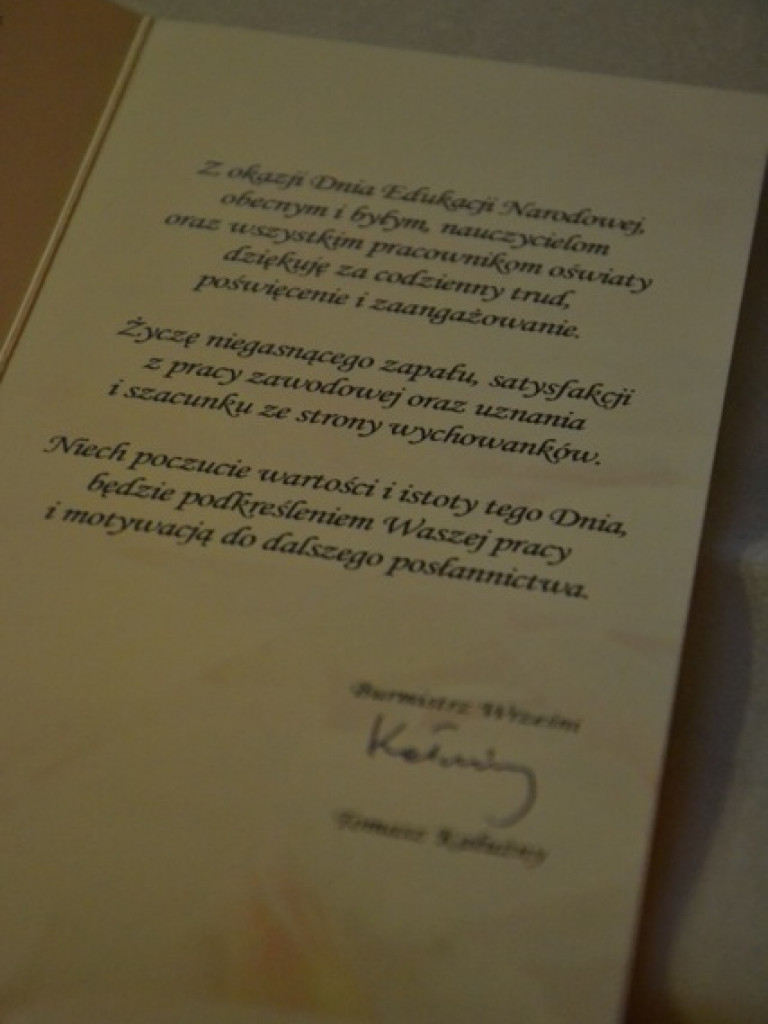 Z okazji Dnia Edukacji Narodowej,
obecnym i byłym, nauczycielom
oraz wszystkim pracownikom oświaty
dziękuję za codzienny trud,
poświęcenie i zaangażowanie.
Życzę niegasnącego zapału, satysfakcji
z pracy zawodowej oraz uznania
i szacunku ze strony wychowanków.
Niech poczucie wartości i istoty tego Dnia,
będzie podkreśleniem Waszej pracy
i motywacją do dalszego posłannictwa.
Burmistrz Wrześni
Tomasz Kałużny